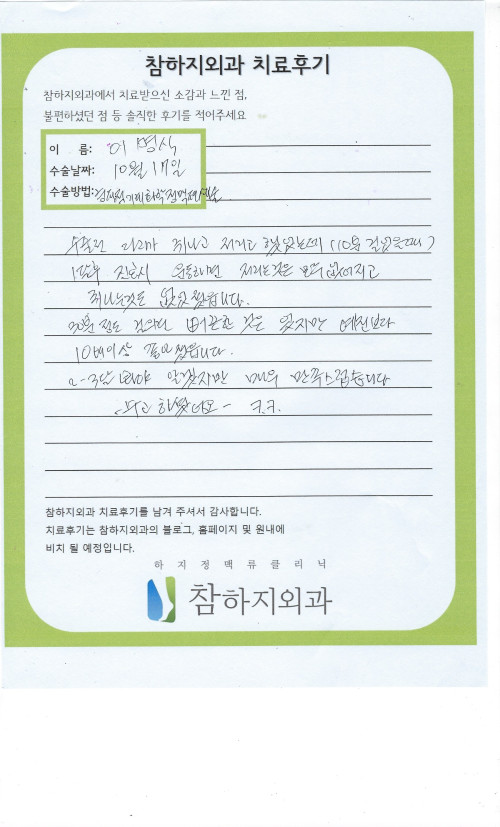 참하지외과 치료후기
참하지외과에서 치료받으신 소감과 느낀 점,
불편하셨던 점 등 솔직한 후기를 적어주세요
이 름: 이명식
수술날짜: 10월 17일
수술방법:
수술전 다리가 쥐나고 저리고 했었는데 (10분 걸었을때)
1달후 진료시 운동하면 저리는것은 모두 없어지고
쥐나는것은 없었습니다.
30분 정도 걸으니 뻐근한 것은 있지만 예전보다
10배이상 좋아졌습니다.
2-3달 되야 알겠지만 매우 만족스럽습니다
참하지외과 치료후기를 남겨 주셔서 감사합니다.
치료후기는 참하지외과의 블로그, 홈페이지 및 원내에
비치 될 예정입니다.
하지정맥류클리닉
참하지외과